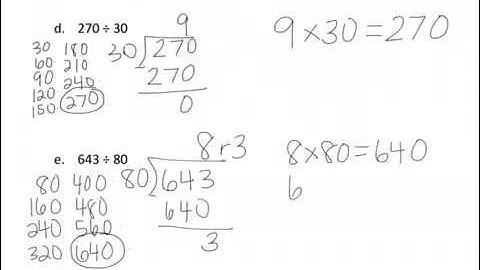 d. 270 ÷ 30
9
30 180
60 210
90 240
120 270
150
30)270
270
0
9×30=270
e. 643 ÷ 80
8 r3
80 400
160 480
240 560
320 640
80)643
640
3
8×80=640
6